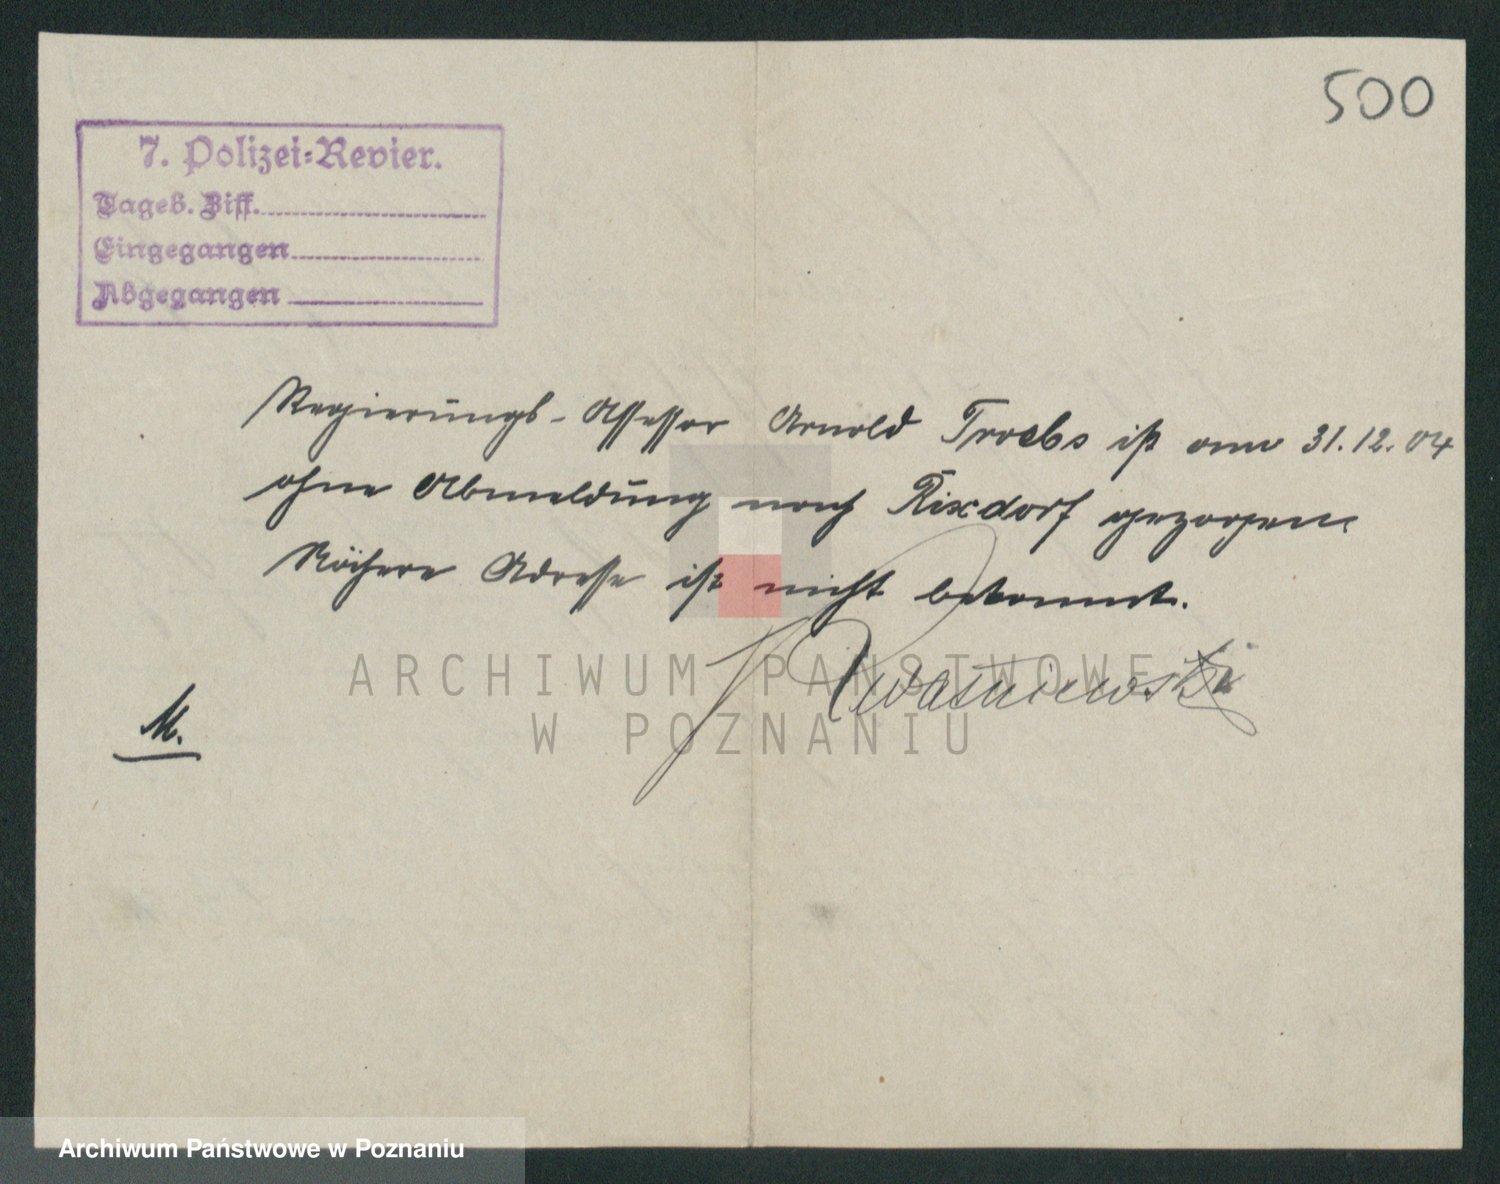 500
7. Polizei-Revier.
Tageb. Ziff.
Eingegangen
Abgegangen
Regierungs-Assessor Arnold Troebs ist am 31.12.04
ohne Abmeldung nach Rixdorf gezogen.
Nähere Adresse ist nicht bekannt.
Kwasniewski
M.
ARCHIWUM PAŃSTWOWE
W POZNANIU
Archiwum Państwowe w Poznaniu